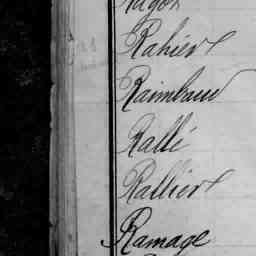 Rahier
Raimbaud
Rallé
Rallier
Ramage